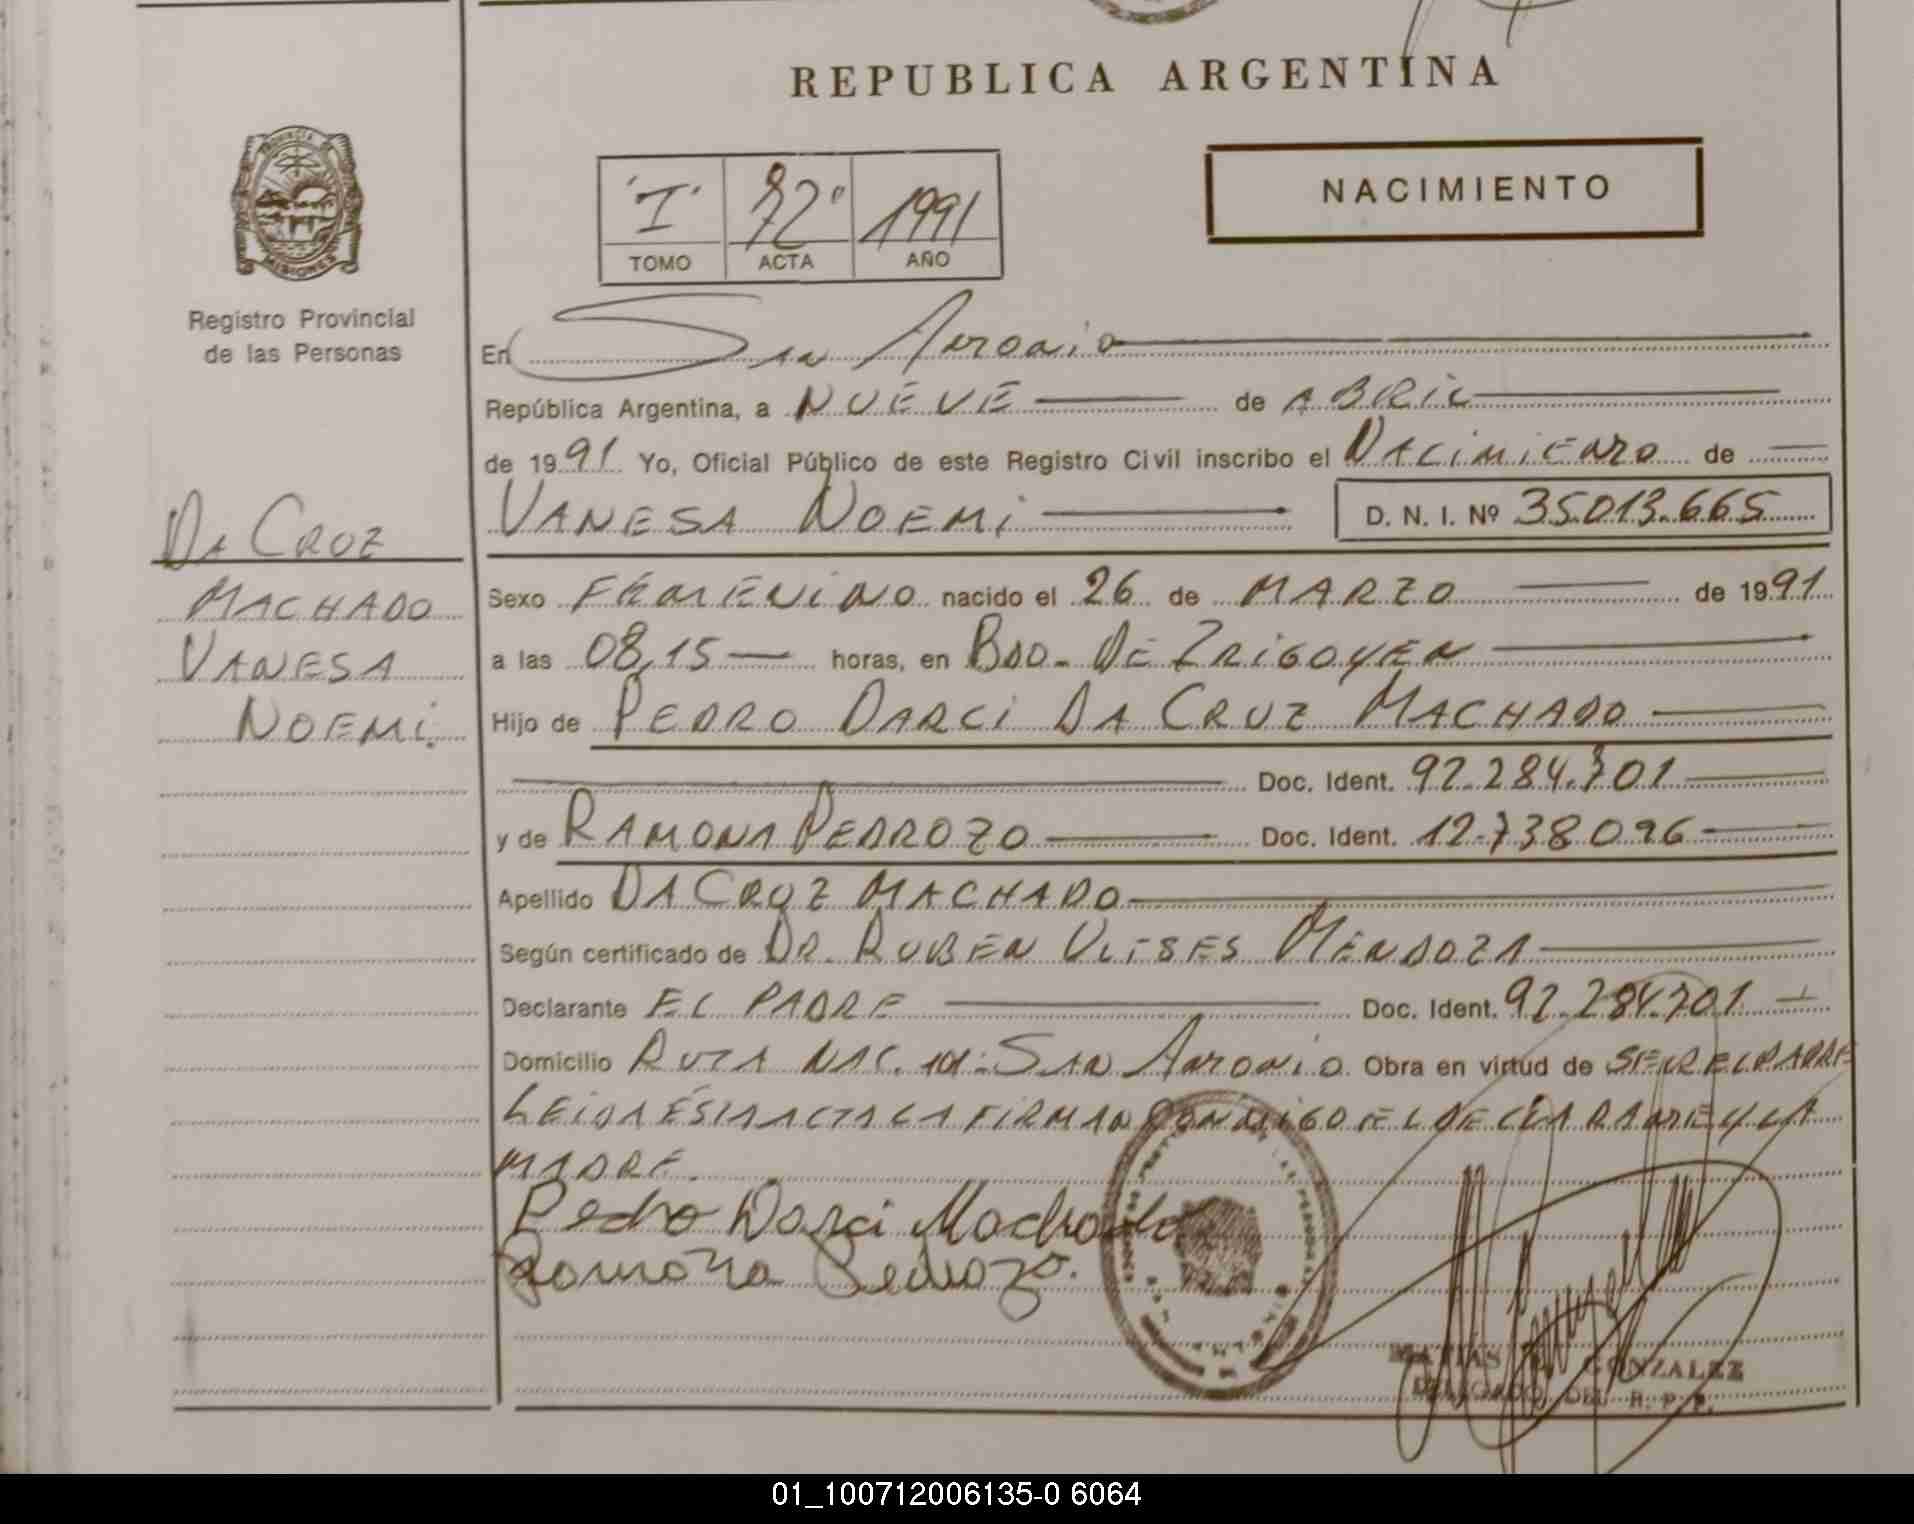 REPUBLICA ARGENTINA
NACIMIENTO
"I" 72° 1991
TOMO ACTA AÑO
PROVINCIA DE
MISIONES
Registro Provincial
de las Personas
En San Antonio
República Argentina, a NUEVE de ABRIL
de 1991 Yo, Oficial Público de este Registro Civil inscribo el NACIMIENTO de
VANESA NOEMI D. N. I. Nº 35.013.665
DA CRUZ
MACHADO
VANESA
NOEMI.
Sexo FEMENINO nacido el 26 de MARZO de 1991
a las 08,15 horas, en BDO. DE IRIGOYEN
Hijo de PEDRO DARCI DA CRUZ MACHADO
Doc. Ident. 92.284.701
y de RAMONA PEDROZO Doc. Ident. 12.738.096
Apellido DA CRUZ MACHADO
Según certificado de DR. RUBEN ULISES MENDOZA
Declarante EL PADRE Doc. Ident. 92.284.701
Domicilio RUTA NAC. 101-SAN ANTONIO. Obra en virtud de SER EL PADRE
LEIDA ESTA ACTA LA FIRMAN CONMIGO EL DECLARANTE Y LA
MADRE.
Pedro Darci Machado
Ramona Pedrozo.
MATIAS GONZALEZ
DELEGADO DEL R. P. P.
01_100712006135-0 6064